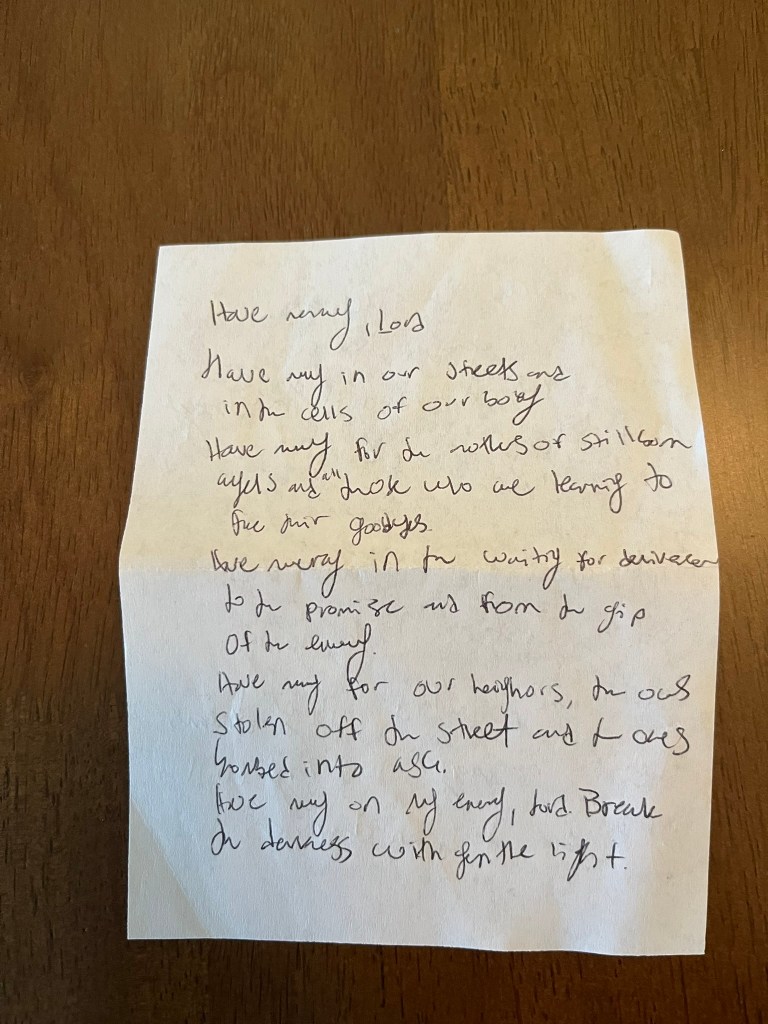 Have mercy, Lord
Have mercy in our streets and
in the cells of our body
Have mercy for the mothers of stillborn
angels and all those who are learning to
their goodbyes.
Have mercy in the waiting for deliverance
to the promise and from the grip
of the enemy.
Have mercy for our neighbors, the ones
stolen off the street and the ones
bombed into ash.
Have mercy on my enemy, Lord. Break
the darkness with gentle light.